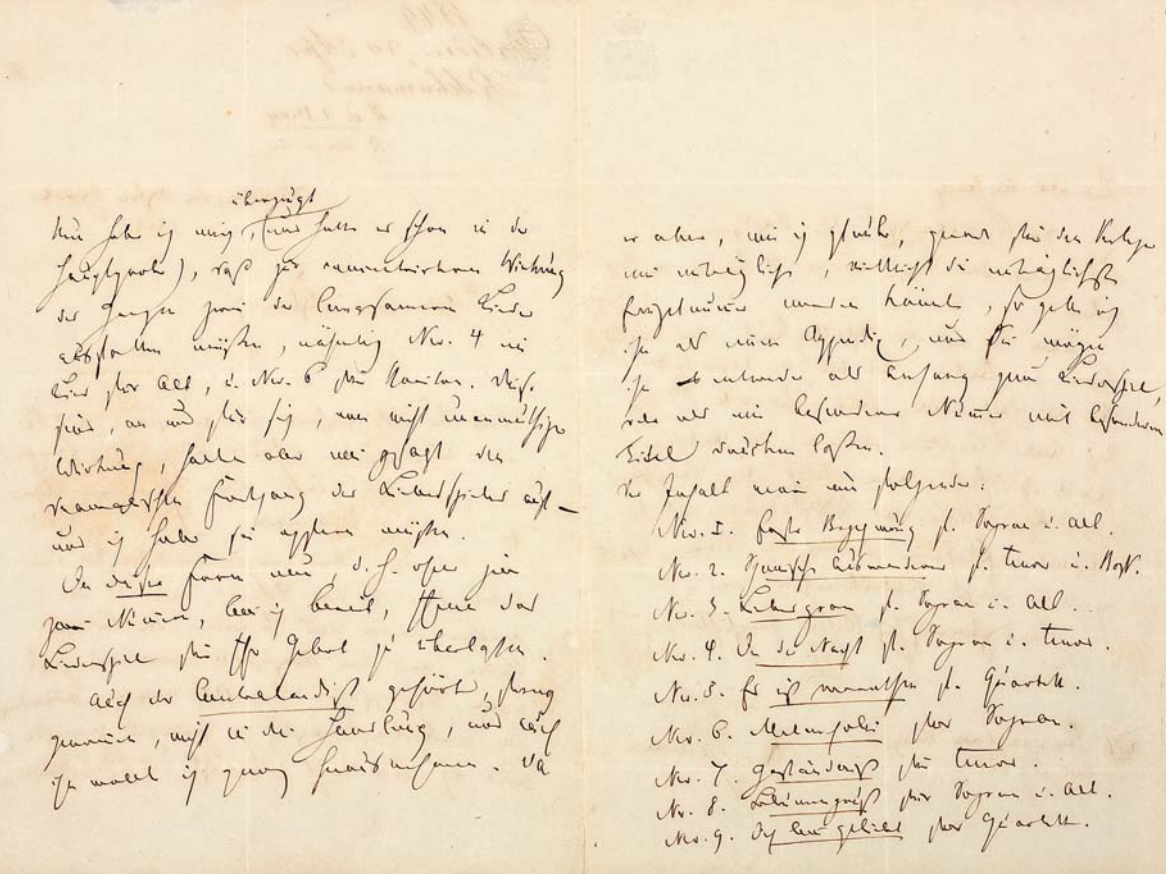 überzeugt
Nun habe ich mich, (und hatte es schon in der
Hauptprobe), daß zur Wirkung
des Ganzen zwei der langsameren Lieder
ausfallen müßen, nähmlich Nro. 4 ein
Lied für Alt, u. Nro. 6 für Bariton. Diese
sind, an und für sich, von nicht unanmuthiger
Wirkung, halten aber wie gesagt den
dramatischen Fortgang des Liederspieles auf –
und ich habe sie opfern müßen.
In dieser Form nun, d. h. ohne jene
zwei Nummern, bin ich bereit, Ihnen das
Liederspiel für Ihr Gebot zu überlaßen.
Auch der Contrabandist gehört, streng
genommen, nicht in die Handlung, und auch
ihn wollte ich ganz herausnehmen. Da
er aber, wie ich glaube, gerade für den Verleger
eine einträgliche, vielleicht die einträglichste
Einzelnummer werden könnte, so gebe ich
ihn als einen Appendix, und Sie mögen
ihn entweder als Anhang zum Liederspiel,
oder als eine besondere Nummer mit besonderem
Titel drucken laßen.
Der Inhalt wäre nun folgender:
Nro. 1. Erste Begegnung f. Sopran u. Alt.
Nro. 2. f. Tenor u. Baß.
Nro. 3. Liebesgram f. Sopran u. Alt.
Nro. 4. In der Nacht f. Sopran u. Tenor.
Nro. 5. Es ist verrathen f. Quartett.
Nro. 6. Melancholie für Sopran.
Nro. 7. Geständniß für Tenor.
Nro. 8. für Sopran u. Alt.
Nro. 9. Ich bin geliebt für Quartett.